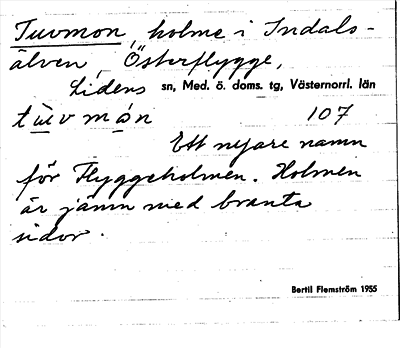 Tuvmon, holme i Indals-
älven, Österflygge,
Lidens sn, Med. ö. doms. tg, Västernorrl. län
tùv mòn 107
Ett nyare namn
för Flyggeholmen. Holmen
är jämn med branta
sidor.
Bertil Flemström 1955